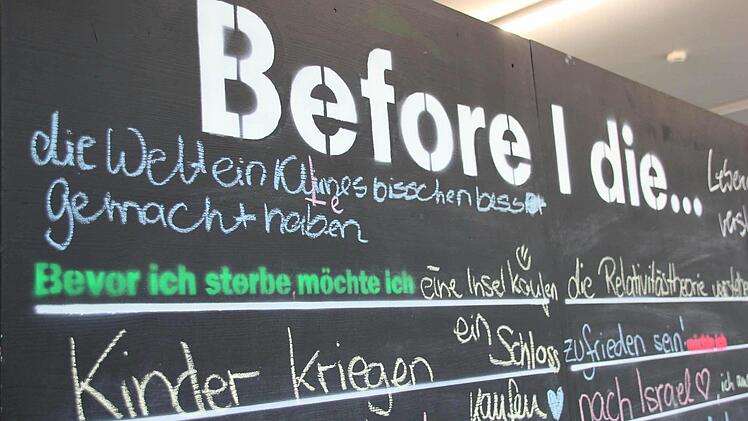 Before I die...
die Welt ein kleines bisschen besser
gemacht haben
Leben
verst
Bevor ich sterbe, möchte ich eine Insel kaufen
die Relativitätstheorie verstehen
ein Schloss
kaufen
zufrieden sein! möchte ich
Kinder kriegen
nach Israel